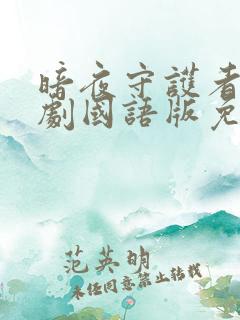 暗夜守護者
劇國語版免
范英明
未经同意禁止转载